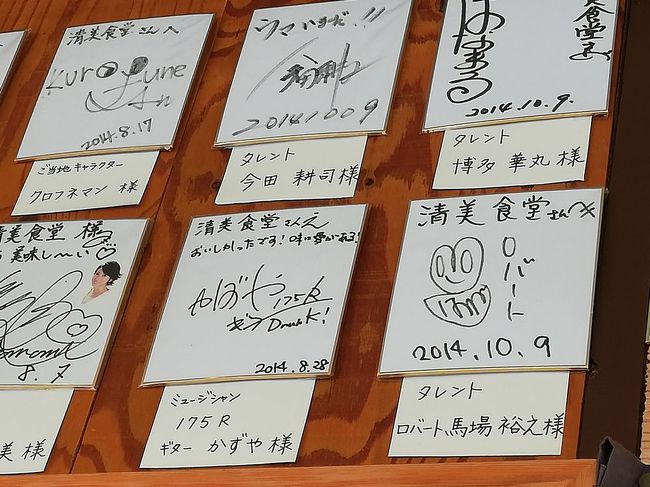 清美食堂さんへ
Kurofune
2014.8.17
ご当地キャラクター
クロフネマン 様
ウマいすぎだ!!
20141009
タレント
今田 耕司様
はなまる
2014.10.9.
タレント
博多 華丸 様
清美食堂 様
美味し〜い♡
8.7
美 様
清美食堂さんえ
おいしかったです!
かずや 175R
2014.8.28
ミュージシャン
175R
ギター かずや 様
清美食堂さんへ
ロバート
2014.10.9
タレント
ロバート馬場 裕之様